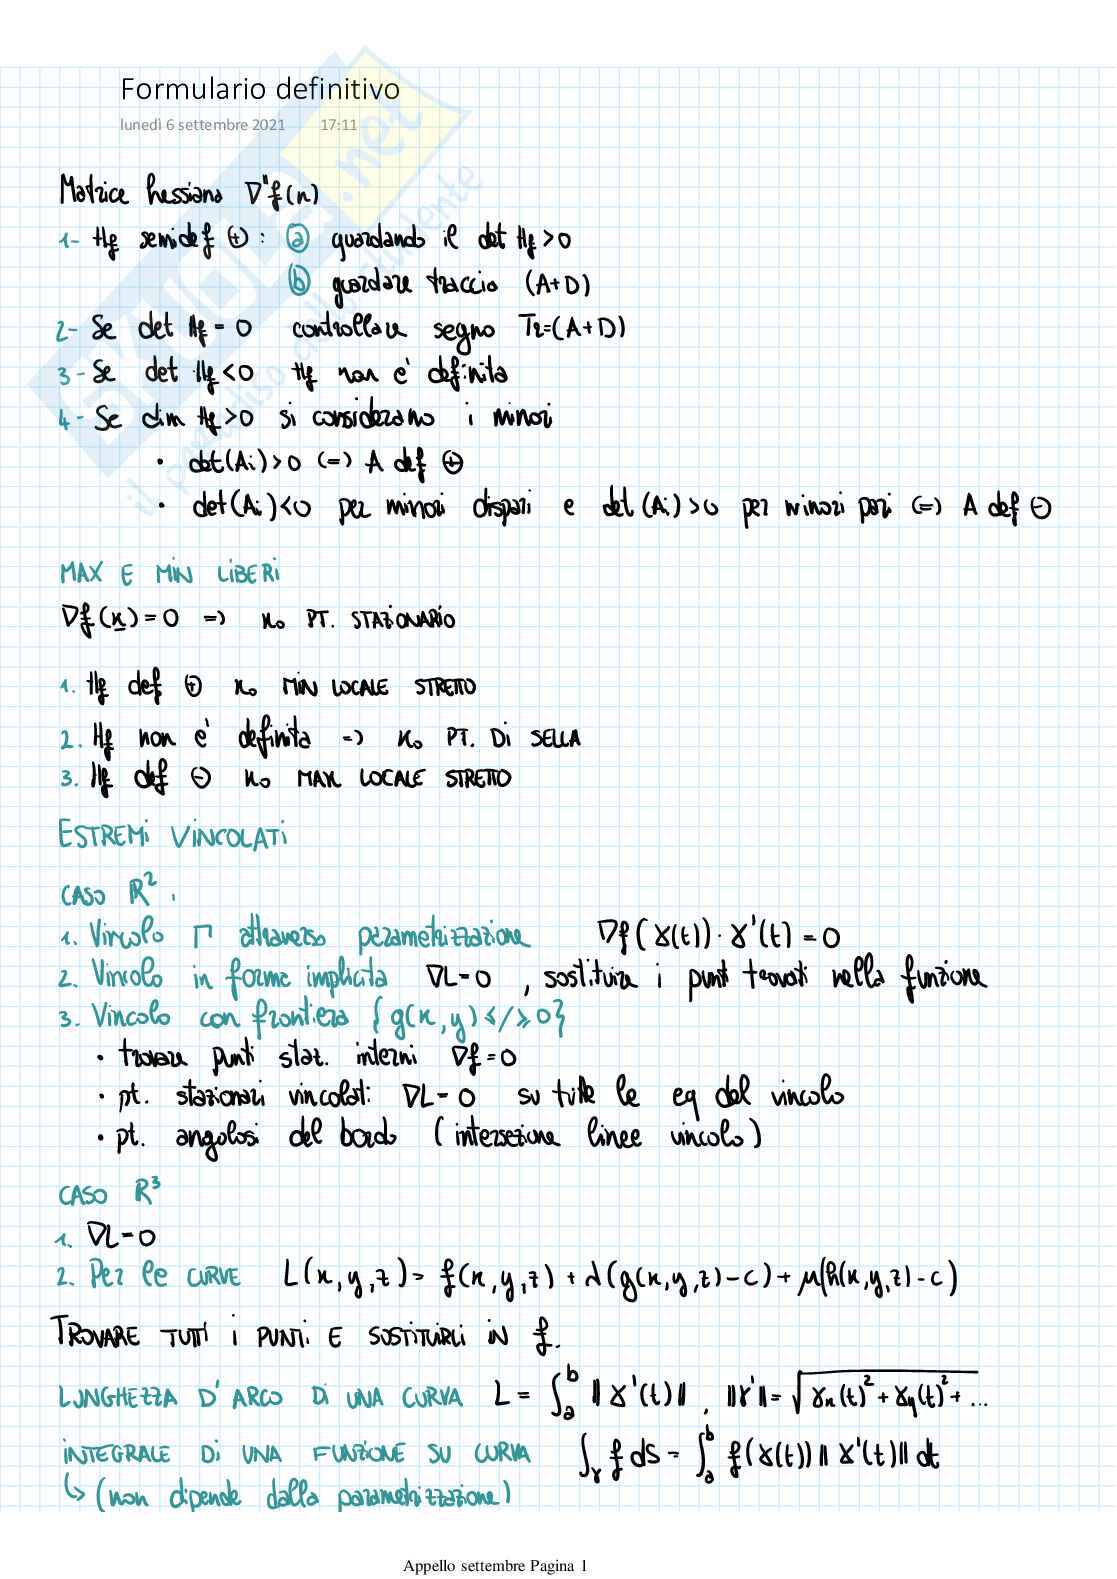 Formulario definitivo
lunedì 6 settembre 2021 17:11
SKUOLA.net
il paradiso dello studente
Matrice hessiana ∇"f(x)
1- Hf semidef ⊕ : ⓐ guardando il det Hf > 0
ⓑ guardare traccia (A+D)
2- Se det Hf = 0 controllare segno Tr=(A+D)
3- Se det Hf < 0 Hf non è definita
4- Se dim Hf > 0 si considerano i minori
• det(Ai) > 0 (=) A def ⊕
• det(Ai) < 0 per minori dispari e det(Ai) > 0 per minori pari (=) A def ⊖
MAX E MIN LIBERI
∇f(x) = 0 => x₀ PT. STAZIONARIO
1. Hf def ⊕ x₀ MIN LOCALE STRETTO
2. Hf non è definita => x₀ PT. DI SELLA
3. Hf def ⊖ x₀ MAX LOCALE STRETTO
ESTREMI VINCOLATI
CASO R² .
1. Vincolo Γ attraverso parametrizzazione ∇f(γ(t)) · γ'(t) = 0
2. Vincolo in forma implicita ∇L = 0 , sostituire i punti trovati nella funzione
3. Vincolo con frontiera {g(x,y) ≤/≥ 0}
• trovare punti staz. interni ∇f = 0
• pt. stazionari vincolati: ∇L = 0 su tutte le eq del vincolo
• pt. angolosi del bordo (intersezione linee vincolo)
CASO R³
1. ∇L = 0
2. Per le CURVE L(x,y,z) = f(x,y,z) + λ(g(x,y,z) - c) + μ(h(x,y,z) - c)
TROVARE TUTTI I PUNTI E SOSTITUIRLI IN f.
LUNGHEZZA D'ARCO DI UNA CURVA L = ∫ₐᵇ ‖γ'(t)‖ , ‖γ'‖ = √(γx(t)² + γy(t)² + ...
INTEGRALE DI UNA FUNZIONE SU CURVA ∫γ f ds = ∫ₐᵇ f(γ(t)) ‖γ'(t)‖ dt
↳ (non dipende dalla parametrizzazione)
Appello settembre Pagina 1